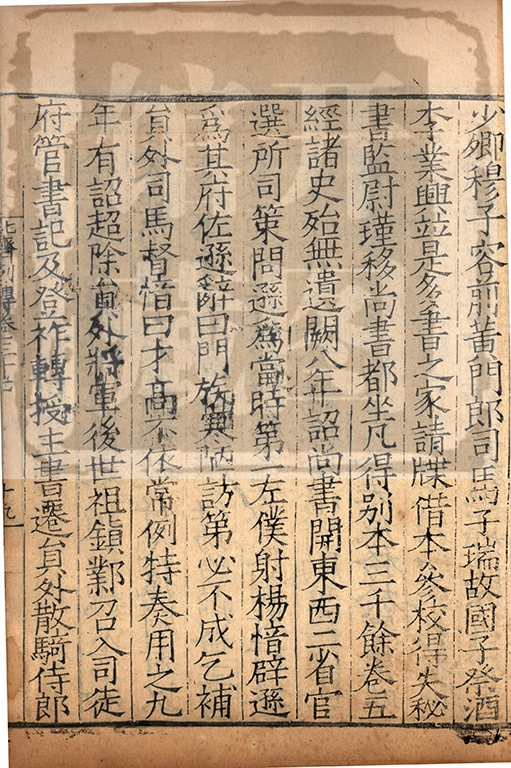 少卿穆子容前黃門郎司馬子瑞故國子祭酒
李業興並是多書之家請牒借本參校得失秘
書監尉瑾移尚書都坐凡得别本三千餘卷五
經諸史殆無遺闕八年詔尚書開東西二省官
選所司策問遜為當時第一左僕射楊愔辟遜
為其府佐遜辭曰門族寒陋訪第必不成乞補
員外司馬督愔曰才高不依常例特奏用之九
年有詔超除員外將軍後世祖鎮鄴召入司徒
府管書記及登祚轉授主書遷員外散騎侍郎
北齊列傳卷三十七
十九